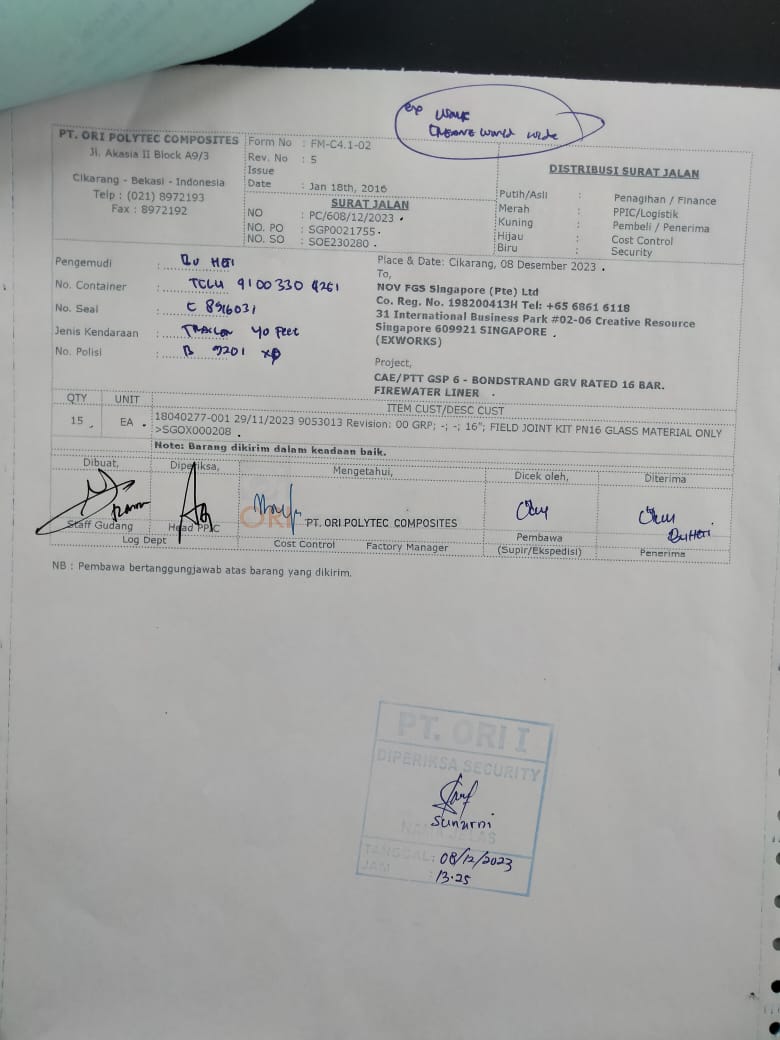 PT. ORI POLYTEC COMPOSITES
Jl. Akasia II Block A9/3
Cikarang - Bekasi - Indonesia
Telp : (021) 8972193
Fax : 8972192
Form No : FM-C4.1-02
Rev. No : 5
Issue
Date : Jan 18th, 2016
SURAT JALAN
NO : PC/608/12/2023
NO. PO : SGP0021755
NO. SO : SOE230280
DISTRIBUSI SURAT JALAN
Putih/Asli : Penagihan / Finance
Merah : PPIC/Logistik
Kuning : Pembeli / Penerima
Hijau : Cost Control
Biru : Security
Pengemudi :
No. Container : TCLU 9100330
No. Seal :
Jenis Kendaraan : 40 Feet
No. Polisi : B 9201
Place & Date: Cikarang, 08 Desember 2023
To,
NOV FGS Singapore (Pte) Ltd
Co. Reg. No. 198200413H Tel: +65 6861 6118
31 International Business Park #02-06 Creative Resource
Singapore 609921 SINGAPORE
(EXWORKS)
Project,
CAE/PTT GSP 6 - BONDSTRAND GRV RATED 16 BAR.
FIREWATER LINER
QTY UNIT ITEM CUST/DESC CUST
15 EA 18040277-001 29/11/2023 9053013 Revision: 00 GRP; -; -; 16"; FIELD JOINT KIT PN16 GLASS MATERIAL ONLY
>SGOX000208
Note: Barang dikirim dalam keadaan baik.
Dibuat, Diperiksa, Mengetahui, Dicek oleh, Diterima
ORI PT. ORI POLYTEC COMPOSITES
Staff Gudang Head PPIC
Log Dept
Cost Control Factory Manager
Pembawa
(Supir/Ekspedisi)
Penerima
NB : Pembawa bertanggungjawab atas barang yang dikirim.
PT. ORI I
DIPERIKSA SECURITY
Sunarni
NAMA JELAS
TANGGAL : 08/12/2023
JAM : 13.25